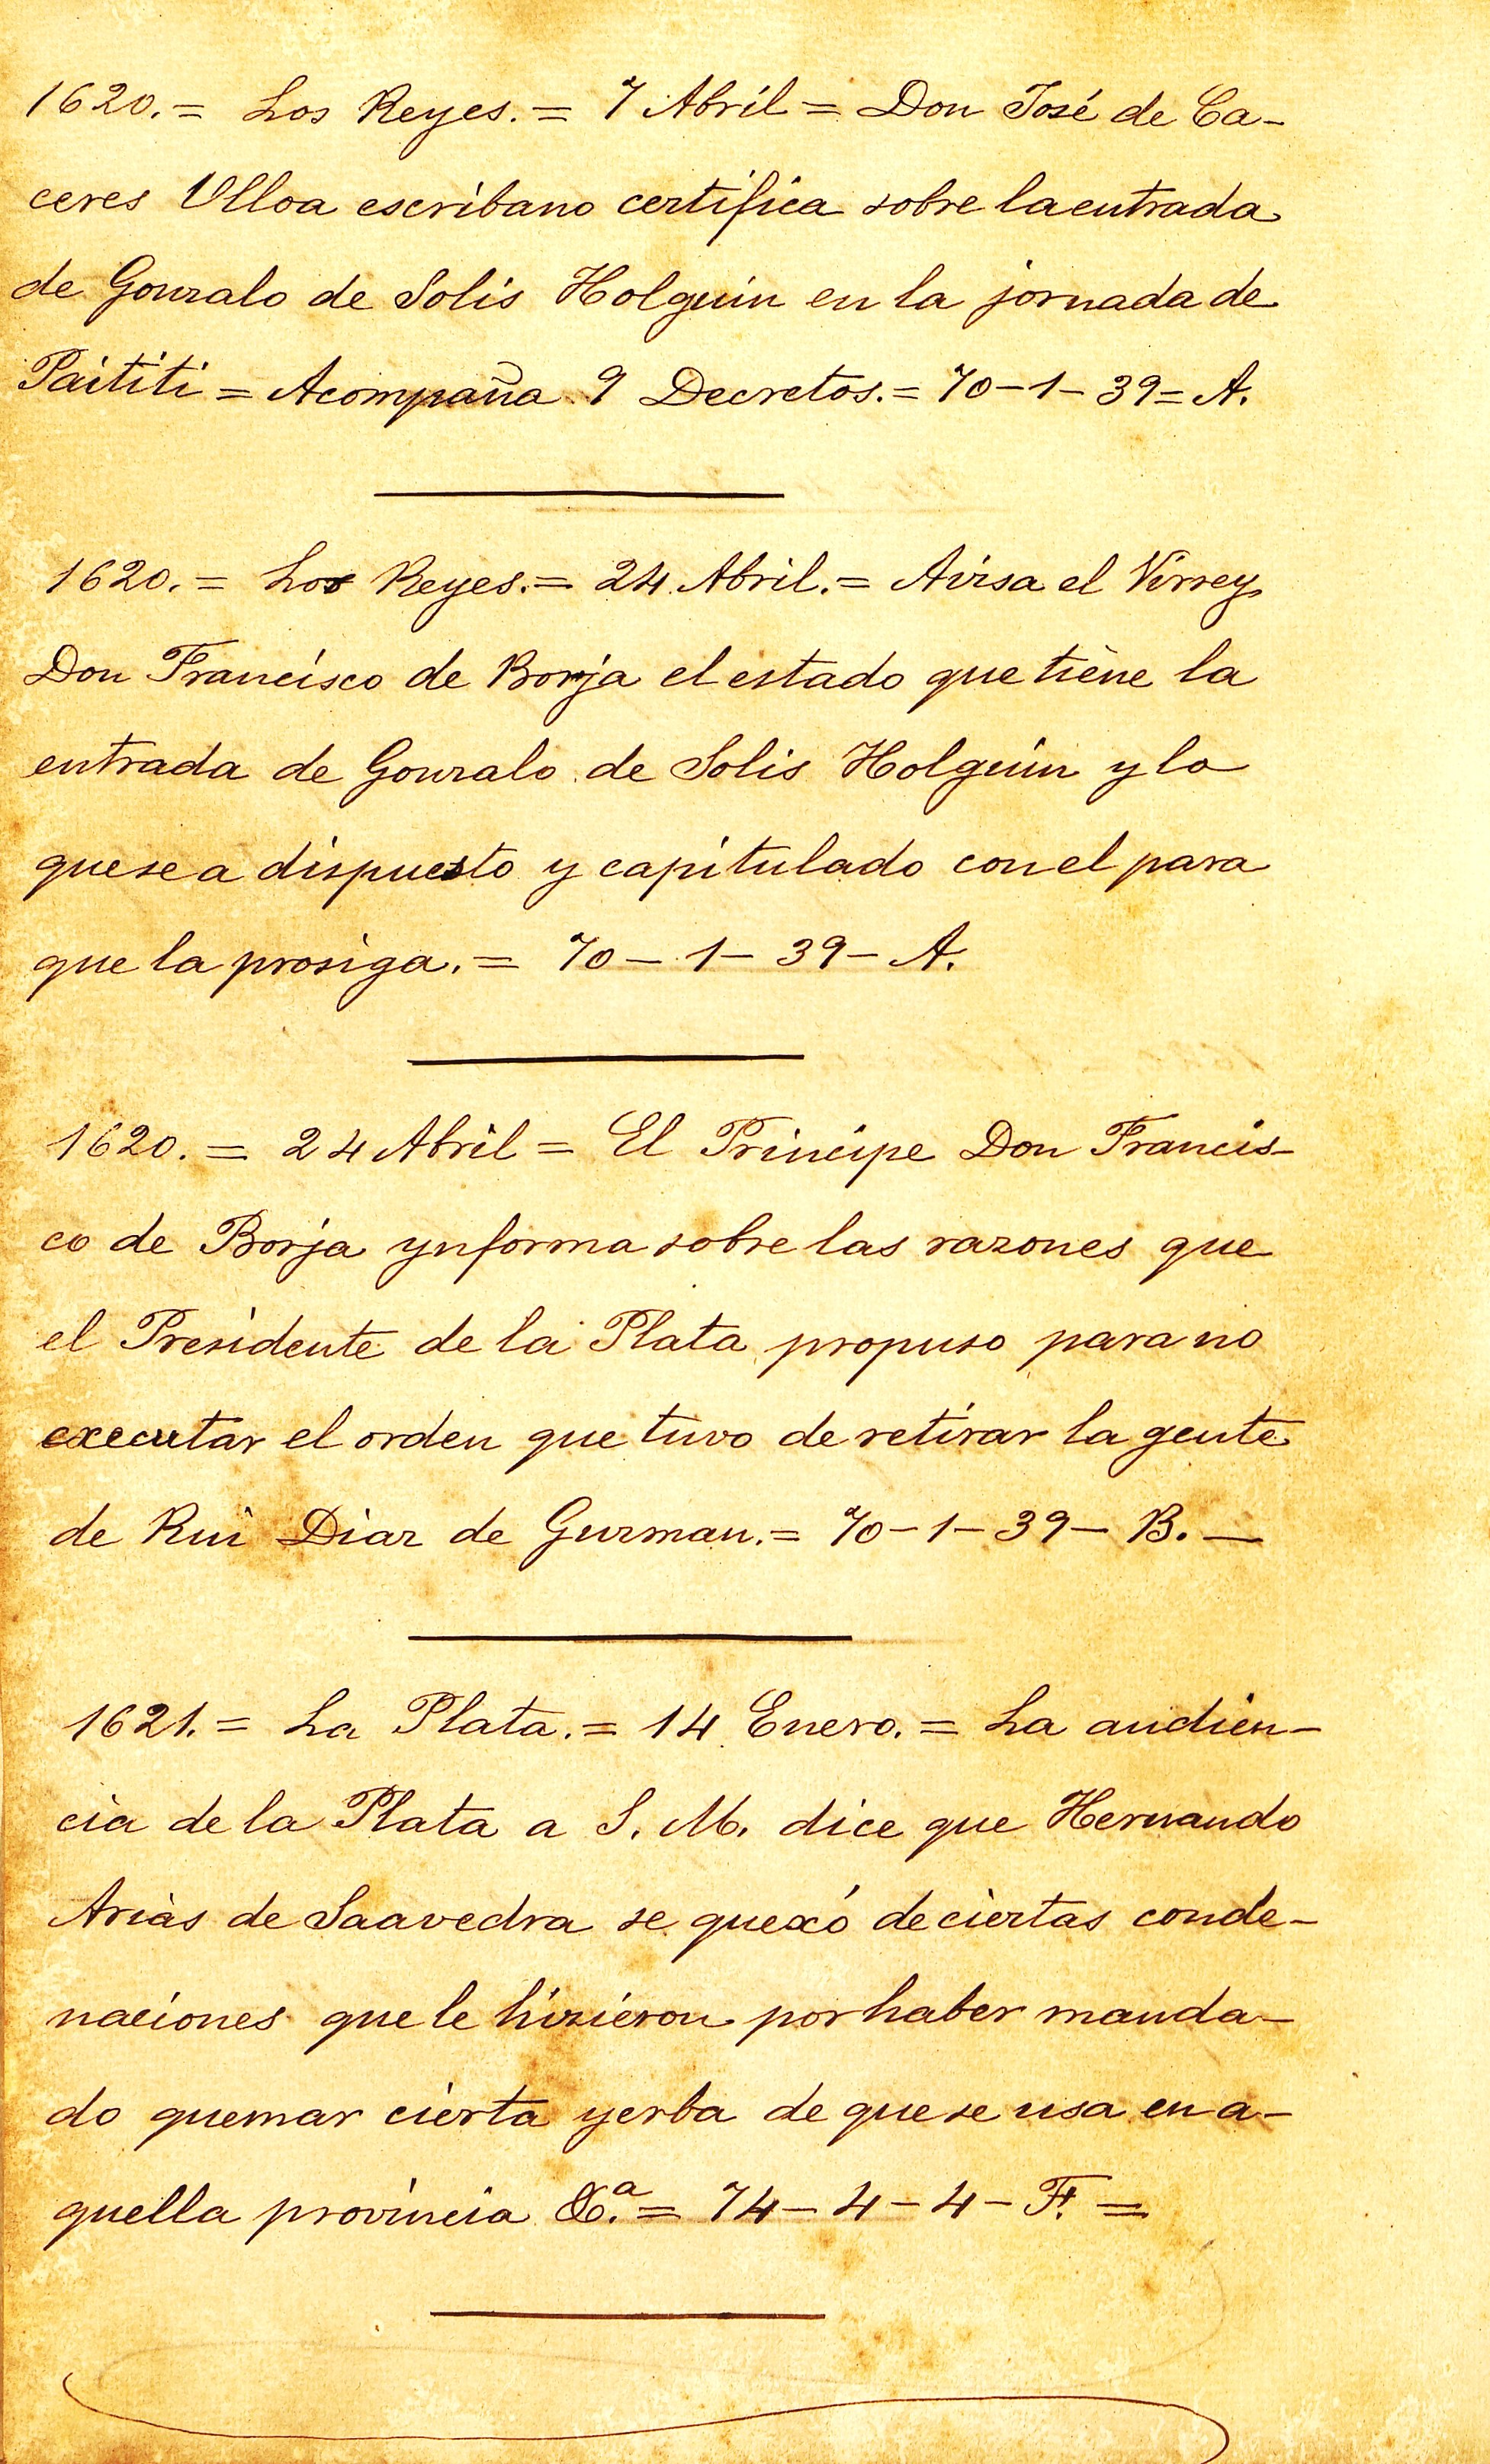 1620. = Los Reyes. = 7 Abril = Don José de Ca-
ceres Ulloa escribano certifica sobre la entrada
de Gonzalo de Solis Holguin en la jornada de
Paititi = Acompaña 9 Decretos. = 70-1-39 = A.
1620. = Los Reyes. = 24 Abril. = Avisa el Virrey
Don Francisco de Borja el estado que tiene la
entrada de Gonzalo de Solis Holguin y lo
que se a dispuesto y capitulado con el para
que la prosiga. = 70-1-39-A.
1620. = 24 Abril = El Principe Don Francis-
co de Borja ynforma sobre las razones que
el Presidente de la Plata propuso para no
executar el orden que tuvo de retirar la gente
de Rui Diaz de Guzman. = 70-1-39-B. —
1621. = La Plata. = 14 Enero. = La audien-
cia de la Plata a S. M. dice que Hernando
Arias de Saavedra se quexó de ciertas conde-
naciones que le hizieron por haber manda-
do quemar cierta yerba de que se usa en a-
quella provincia &.ª = 74-4-4-F. =